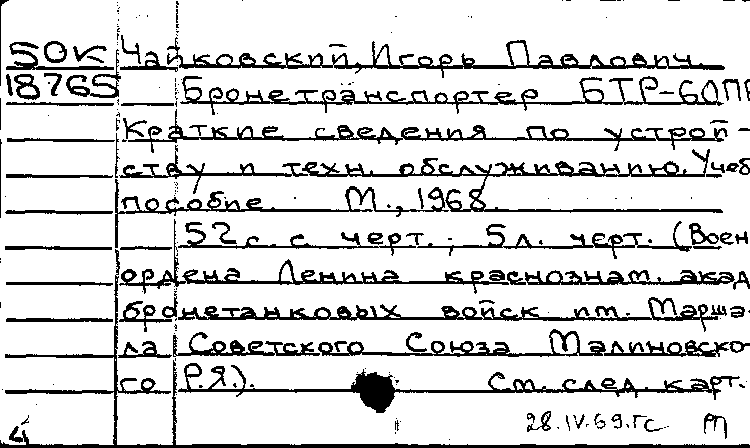 50К Чайковский, Игорь Павлович.
18765 Бронетранспортер БТР-60ПБ
Краткие сведения по устрой-
ству и техн. обслуживанию. Учеб
пособие. М., 1968.
52 с. с черт.; 5 л. черт. (Воен
ордена Ленина краснознам. акад
бронетанковых войск им. Марша-
ла Советского Союза Малиновско-
го Р.Я.).
См. след. карт.
28.IV.69.гс